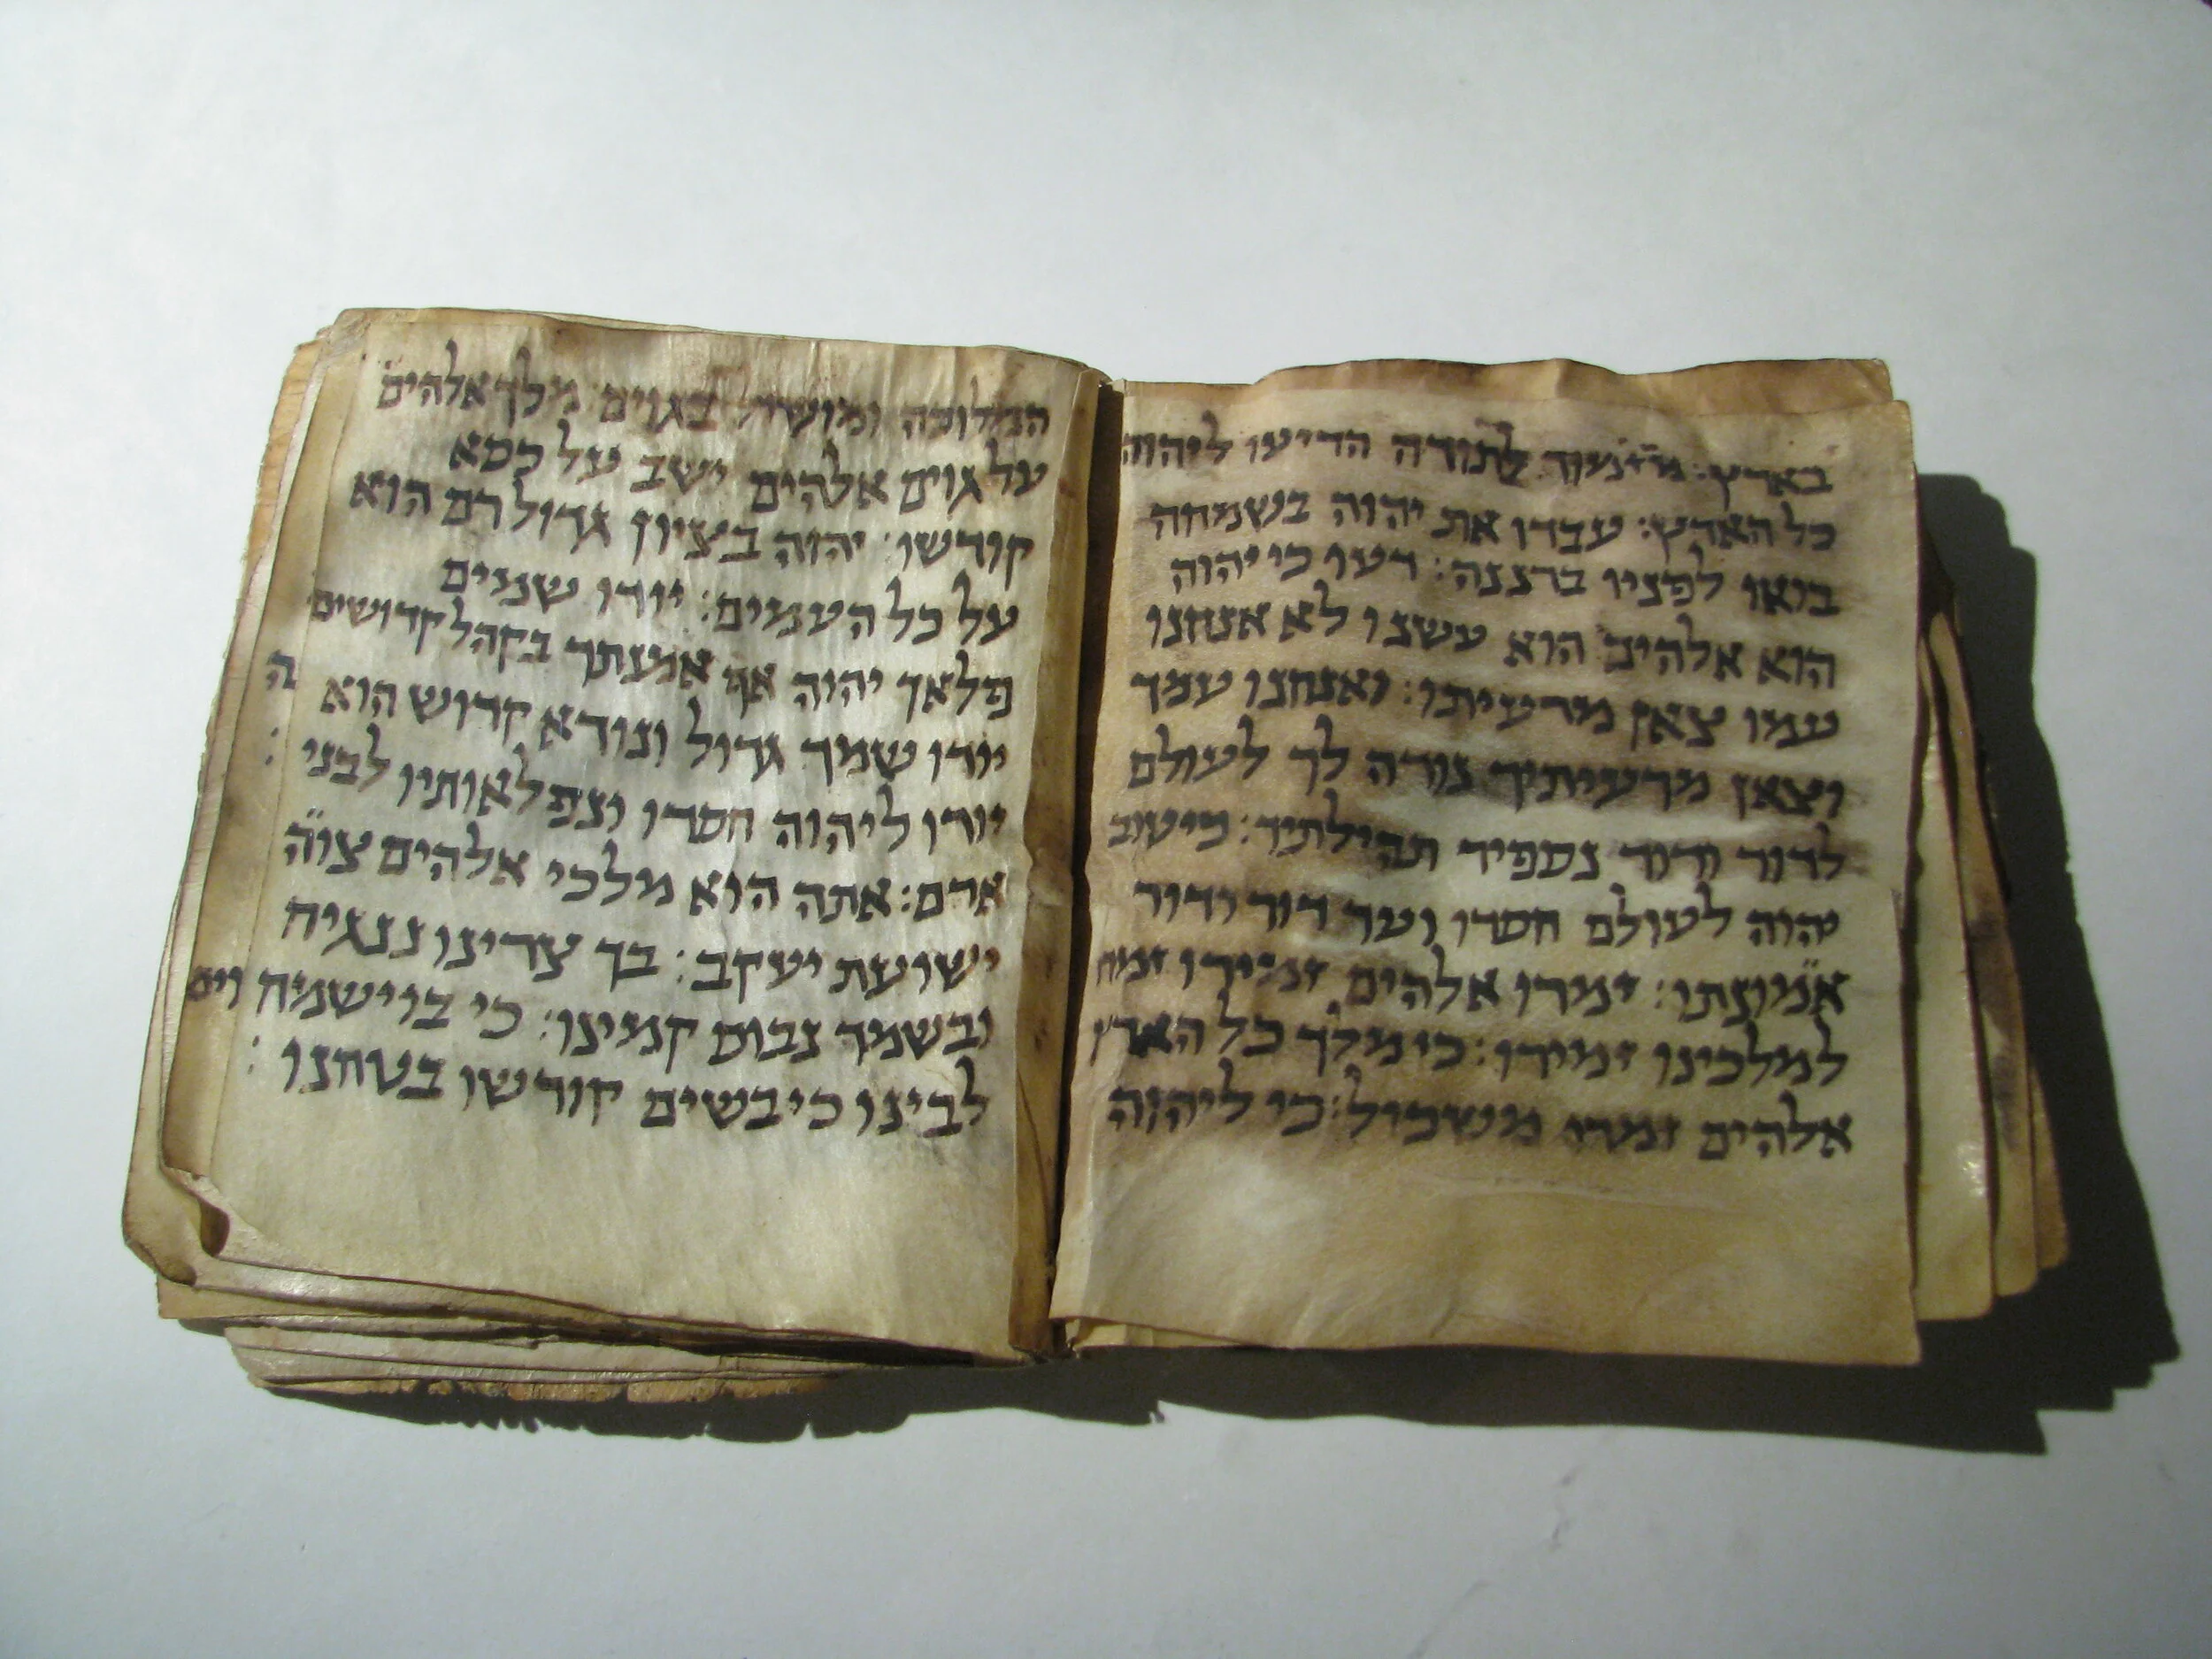 בארץ: מזמור לתורה הדיעו ליהוה
כל הארץ: עבדו את יהוה בשמחה
בואו לפניו ברננה: דעו כי יהוה
הוא אלהים הוא עשנו לא אנחנו
עמו צאן מרעיתו: ואנחנו עמך
וצאן מרעיתיך נודה לך לעולם
לדור ודור נספיר תהילתיך: כי טוב
יהוה לעולם חסדו ועד דור ודור
אמונתו: זמרו אלהים זמירו זמח
למלכינו זמירו: כי מלך כל הארץ
אלהים זמרו משכיל: כי ליהוה
המלוכה ומושל בגוים מלך אלהים
על גוים אלהים ישב על כסא
קודשו: יהוה בציון גדול רם הוא
על כל העמים: יודו שמים
פלאך יהוה אף אמנתך בקהל קדושים
יודו שמך גדול ונורא קדוש הוא ה
יודו ליהוה חסדו ונפלאותיו לבני :
אדם: אתה הוא מלכי אלהים צוה
ישועת יעקב: בך צרינו ננגיח
ובשמך נבוס קמינו: כי בו ישמח וים
לבינו כי בשים קודשו בטחנו :